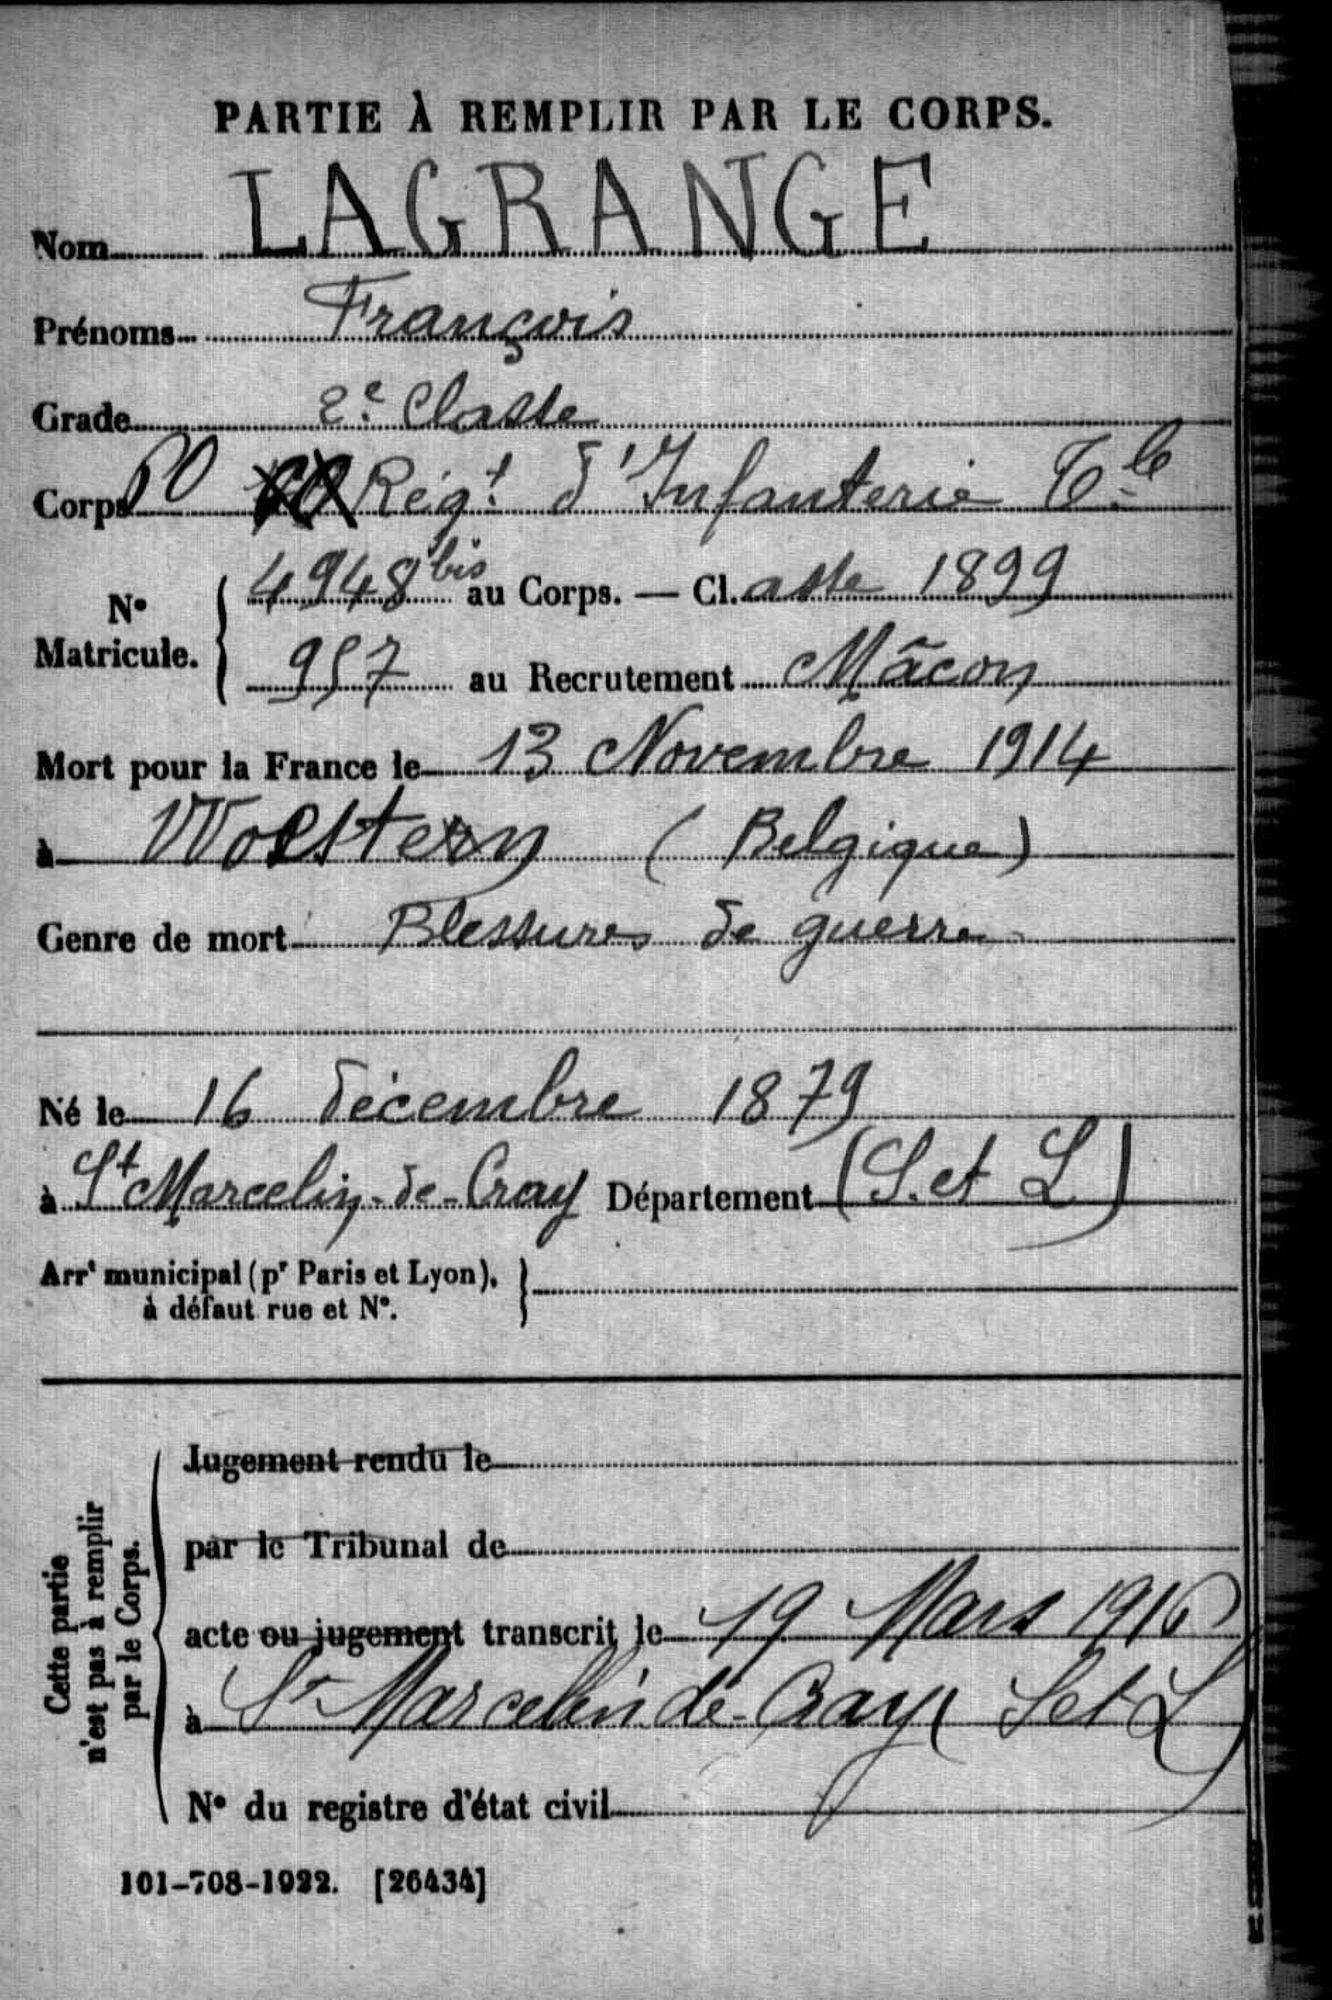 PARTIE À REMPLIR PAR LE CORPS.
Nom LAGRANGE
Prénoms François
Grade 2e Classe
Corps 60 Régt d'Infanterie Tle
4948 bis au Corps. — Cl. asse 1899
N° Matricule.
957 au Recrutement Mâcon
Mort pour la France le 13 Novembre 1914
à Woesten (Belgique)
Genre de mort Blessures de guerre
Né le 16 décembre 1879
à St Marcelin-de-Cray Département (S. et L)
Arrt municipal (pr Paris et Lyon),
à défaut rue et N°.
Cette partie
n'est pas à remplir
par le Corps.
Jugement rendu le
par le Tribunal de
acte ou jugement transcrit le 19 Mars 1916
à St Marcelin de Cray (S et L)
N° du registre d'état civil
101-708-1922. [26434]